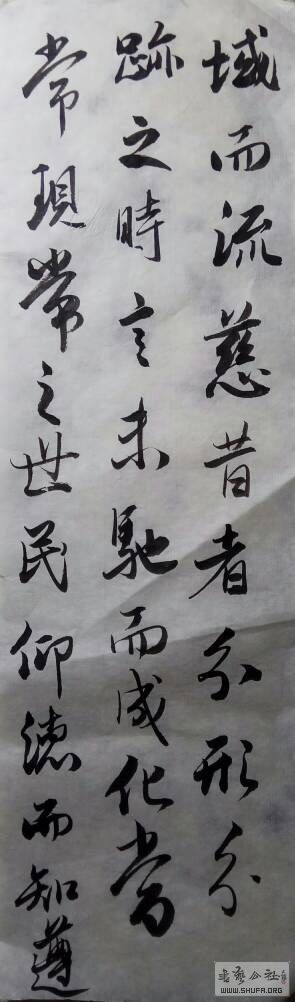 域而流慈昔者分形分
跡之時言未馳而成化當
常現常之世民仰德而知遵
書藝公社
WWW.SHUFA.ORG